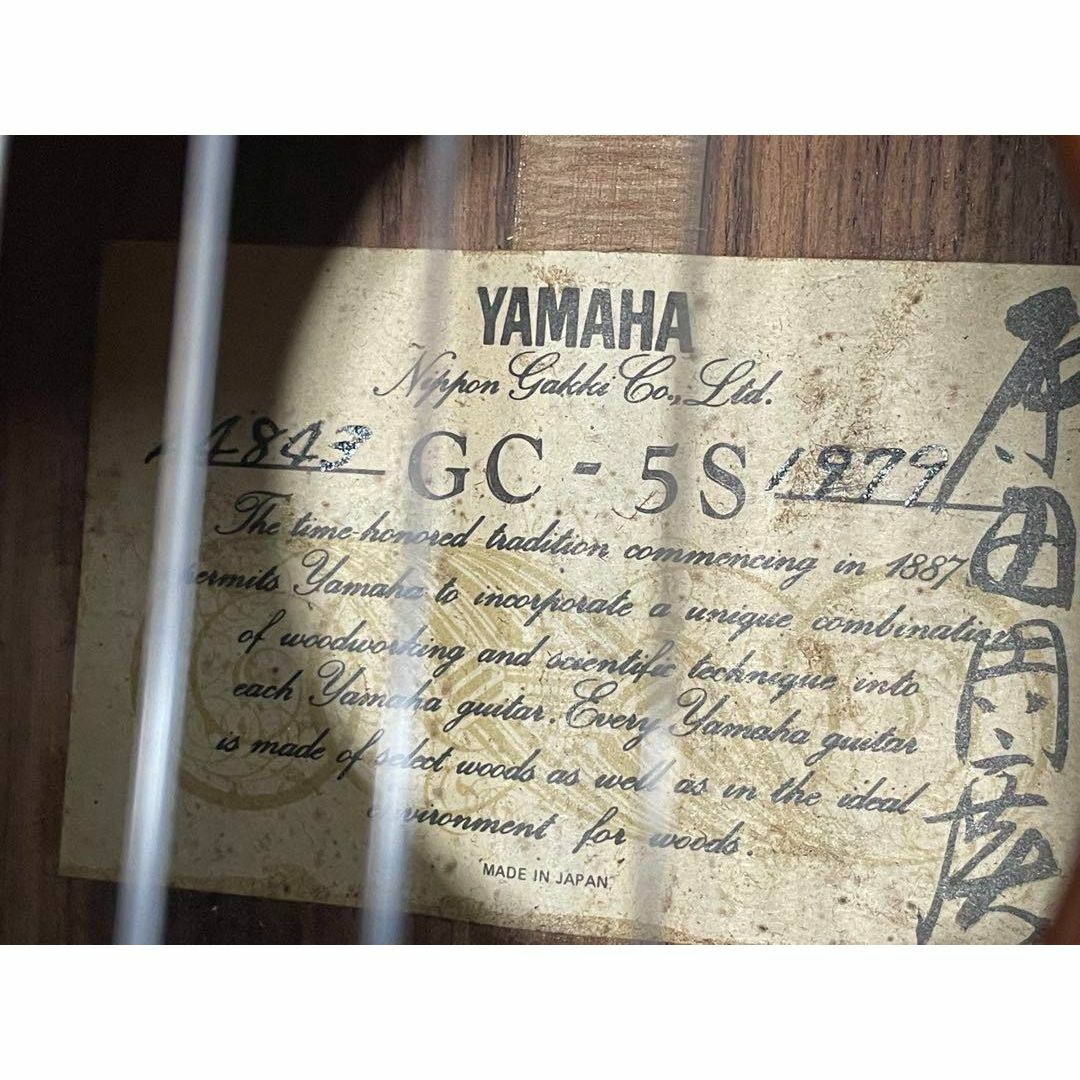 YAMAHA
Nippon Gakki Co., Ltd.
4843 GC-5S 1979
The time-honored tradition commencing in 1887
permits Yamaha to incorporate a unique combination
of woodworking and scientific technique into
each Yamaha guitar. Every Yamaha guitar
is made of select woods as well as in the ideal
environment for woods.
MADE IN JAPAN
田周彦